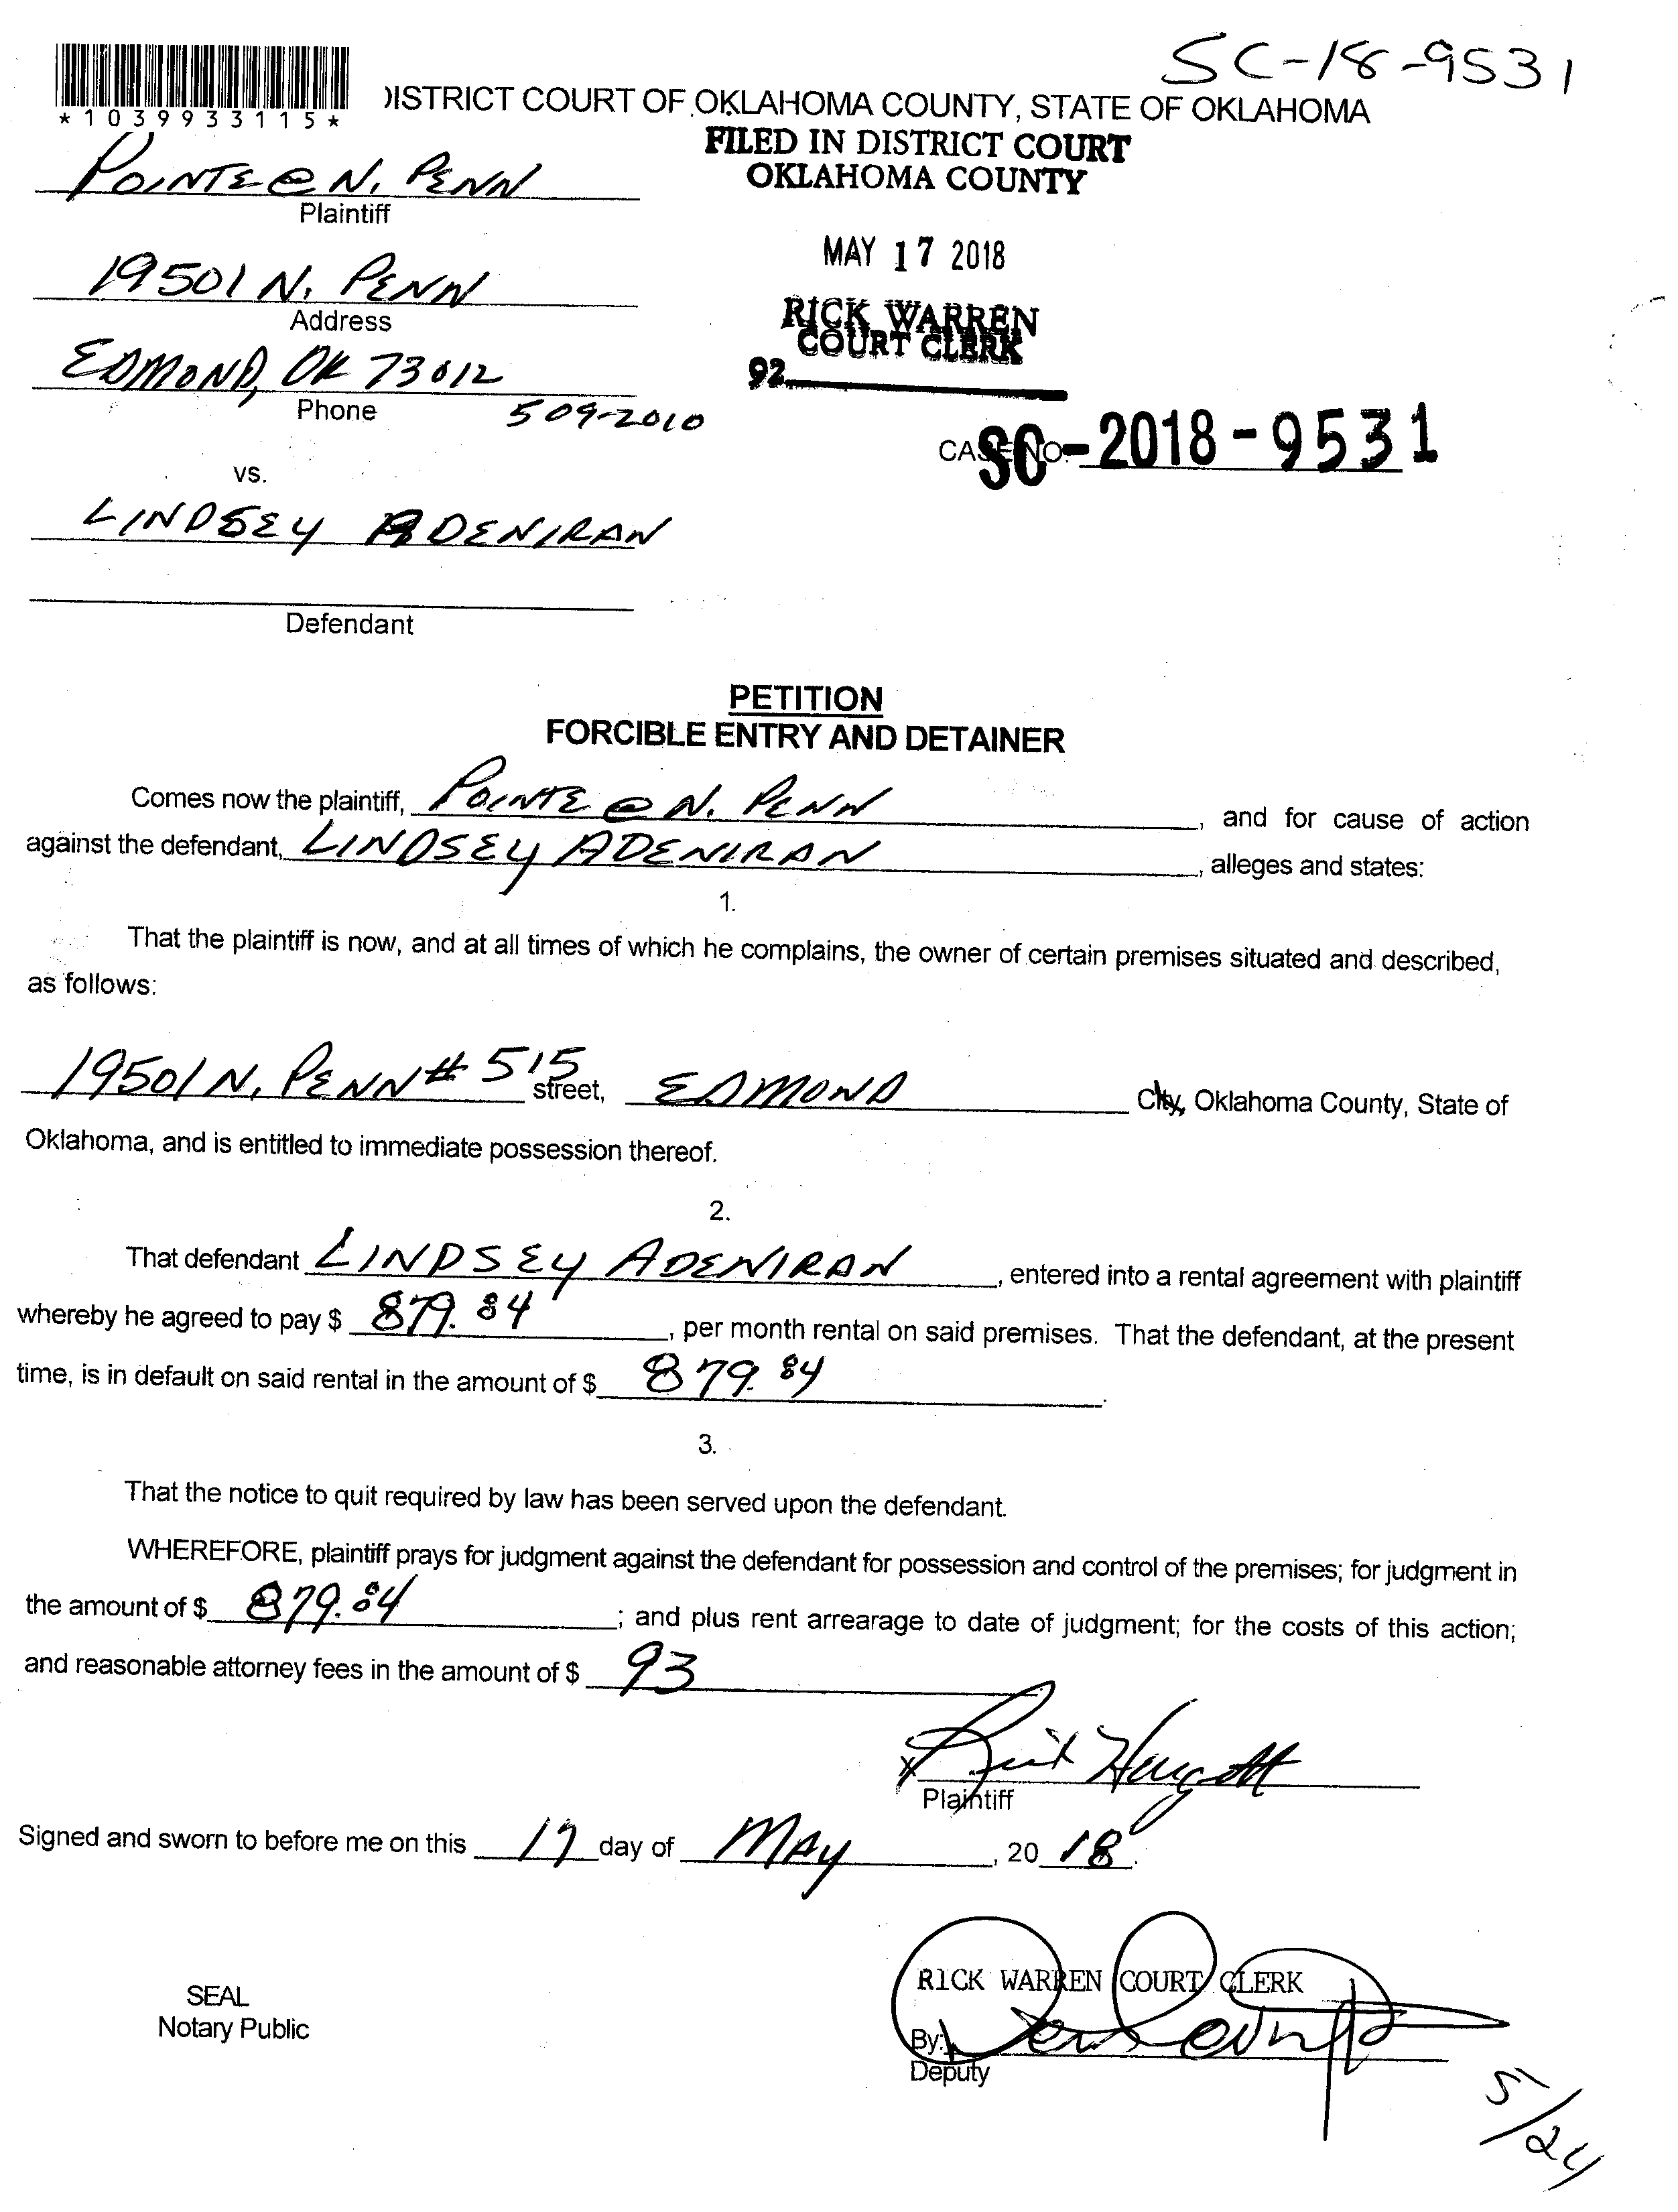 SC-18-9531
*1039933115*
DISTRICT COURT OF OKLAHOMA COUNTY, STATE OF OKLAHOMA
FILED IN DISTRICT COURT
OKLAHOMA COUNTY
POINTE @ N. PENN
Plaintiff
MAY 17 2018
19501 N. PENN
Address
RICK WARREN
COURT CLERK
EDMOND, OK 73012
92
Phone 509-2010
CASE NO. SC-2018-9531
vs.
LINDSEY ADENIRAN
Defendant
PETITION
FORCIBLE ENTRY AND DETAINER
Comes now the plaintiff, POINTE @ N. PENN, and for cause of action
against the defendant, LINDSEY ADENIRAN, alleges and states:
1.
That the plaintiff is now, and at all times of which he complains, the owner of certain premises situated and described,
as follows:
19501 N. PENN # 515 street, EDMOND City, Oklahoma County, State of
Oklahoma, and is entitled to immediate possession thereof.
2.
That defendant LINDSEY ADENIRAN, entered into a rental agreement with plaintiff
whereby he agreed to pay $ 879.84, per month rental on said premises. That the defendant, at the present
time, is in default on said rental in the amount of $ 879.84.
3.
That the notice to quit required by law has been served upon the defendant.
WHEREFORE, plaintiff prays for judgment against the defendant for possession and control of the premises; for judgment in
the amount of $ 879.84; and plus rent arrearage to date of judgment; for the costs of this action;
and reasonable attorney fees in the amount of $ 93
X
Plaintiff
Signed and sworn to before me on this 17 day of MAY, 2018.
RICK WARREN COURT CLERK
SEAL
Notary Public
By:
Deputy
5/24